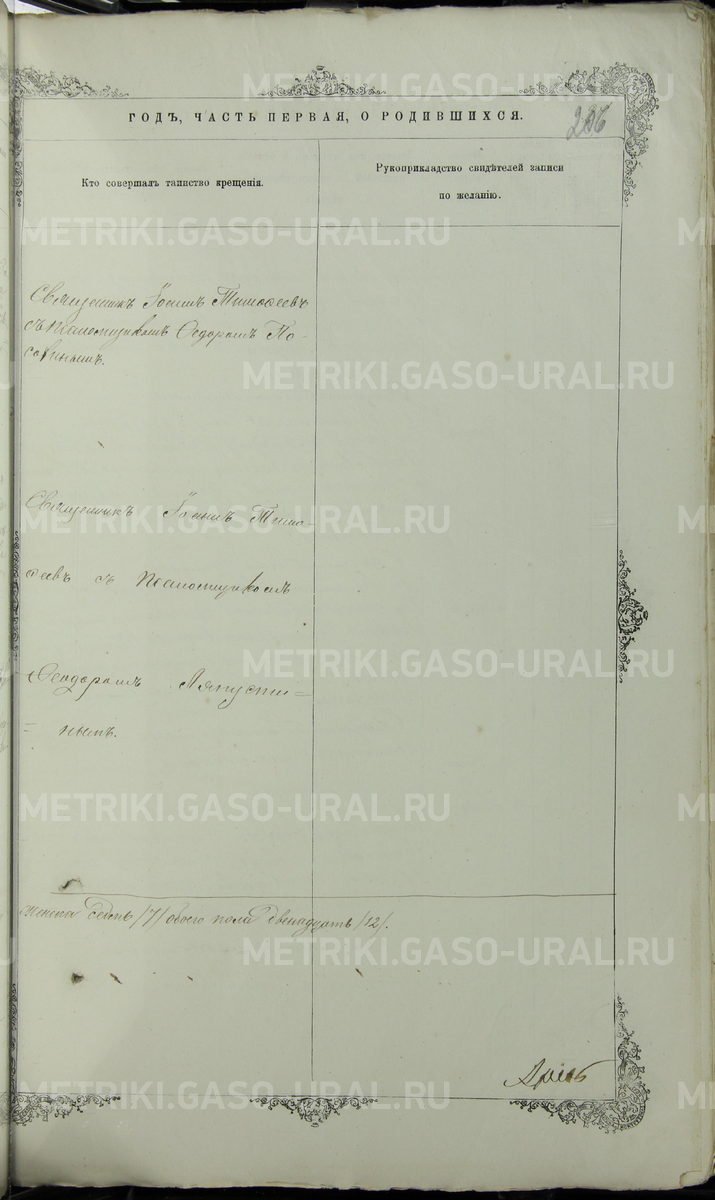 ГОДЪ, ЧАСТЬ ПЕРВАЯ, О РОДИВШИХСЯ.
Кто совершалъ таинство крещенія.
Рукоприкладство свидѣтелей записи
по желанію.
Священникъ Іоаннъ Тимоѳеевъ
съ псаломщикомъ Ѳеодоромъ
Священникъ Іоаннъ Тимо-
ѳеевъ съ псаломщикомъ
Ѳеодоромъ Ляпусти-
нымъ.
женска седмь /7/ обоего пола двенадцать /12/.
METRIKI.GASO-URAL.RU